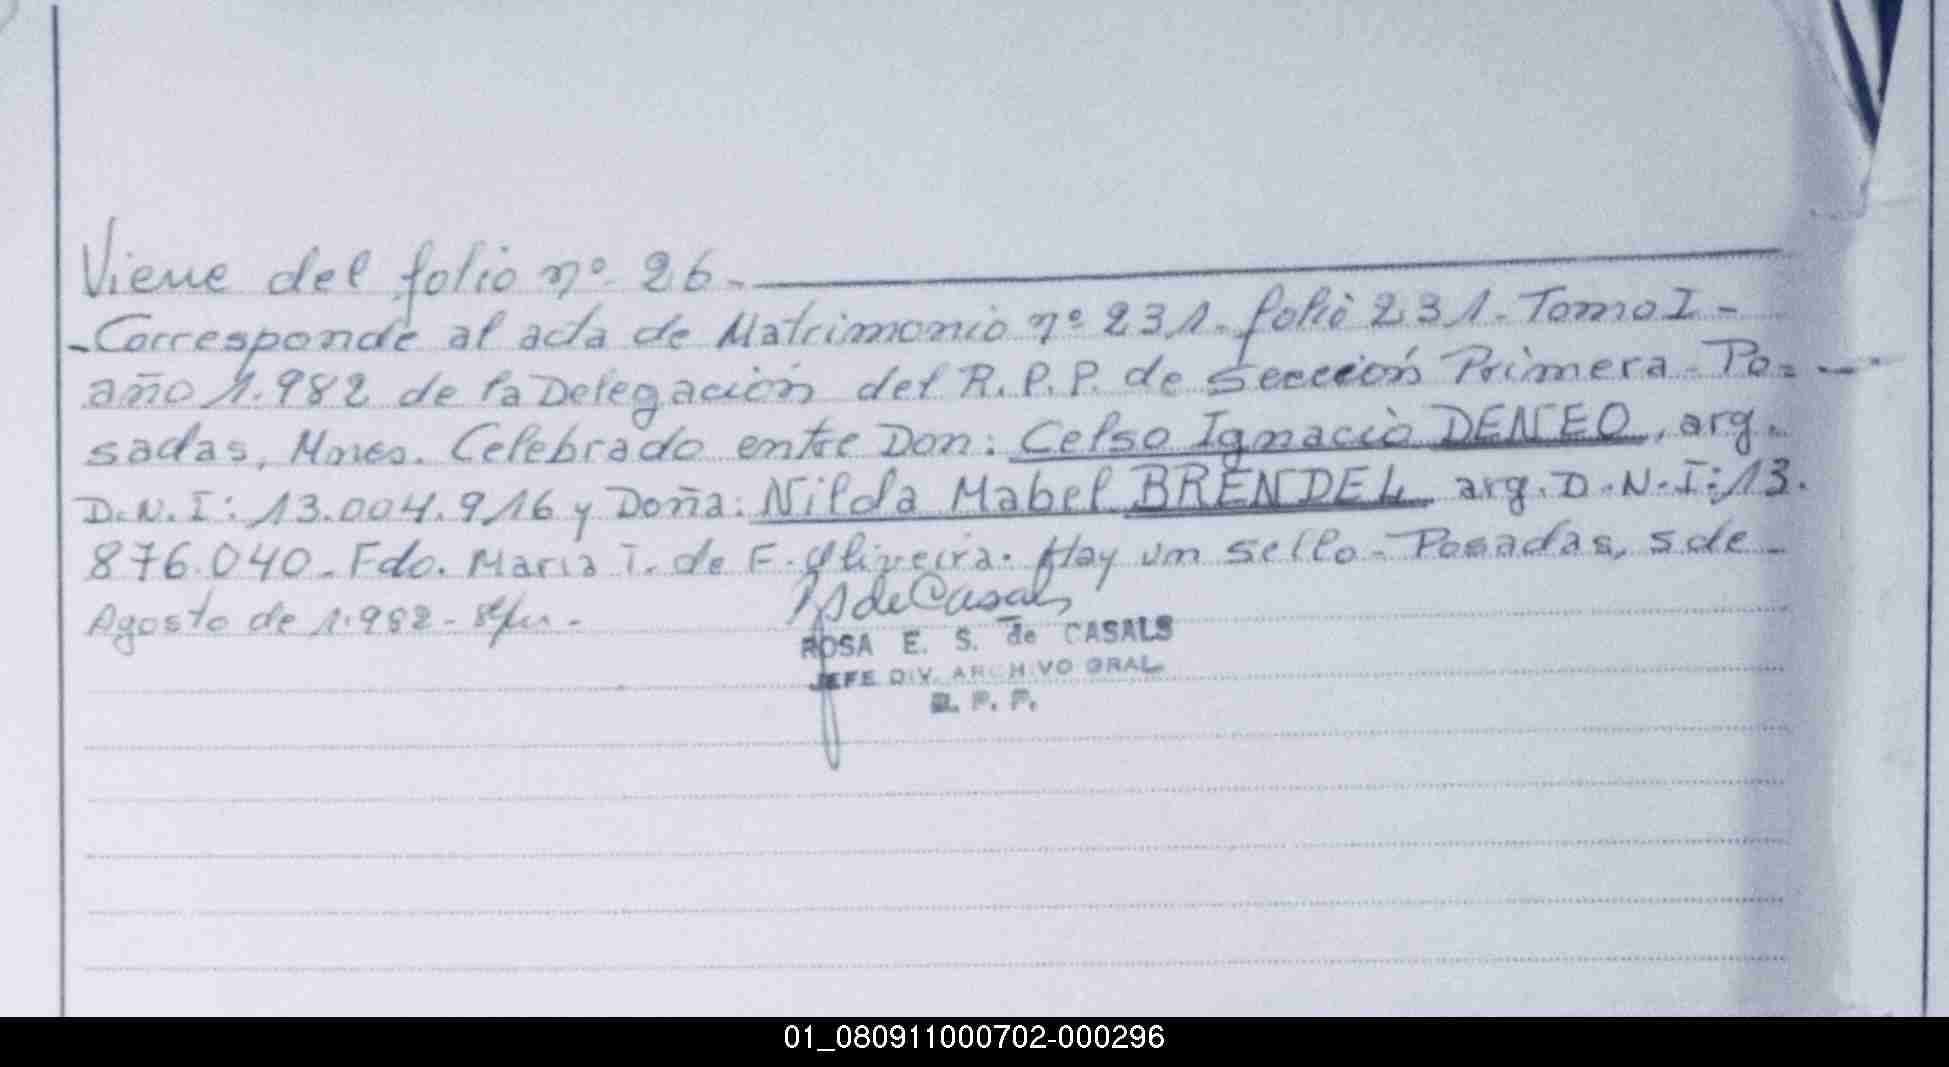 Viene del folio nº 26.
- Corresponde al acta de Matrimonio nº 231. folio 231. Tomo I -
año 1.982 de la Delegación del R.P.P. de Sección Primera - Po=
sadas, Mnes. Celebrado entre Don: Celso Ignacio DENEO, arg.
D.N.I: 13.004.916 y Doña: Nilda Mabel BRENDEL arg. D.N.I: 13.
876.040 - Fdo. Maria T. de F. Oliveira. Hay un sello - Posadas, 5 de
Agosto de 1.982 -
de Casals
ROSA E. S. de CASALS
JEFE DIV. ARCHIVO GRAL.
R. P. P.
01_080911000702-000296